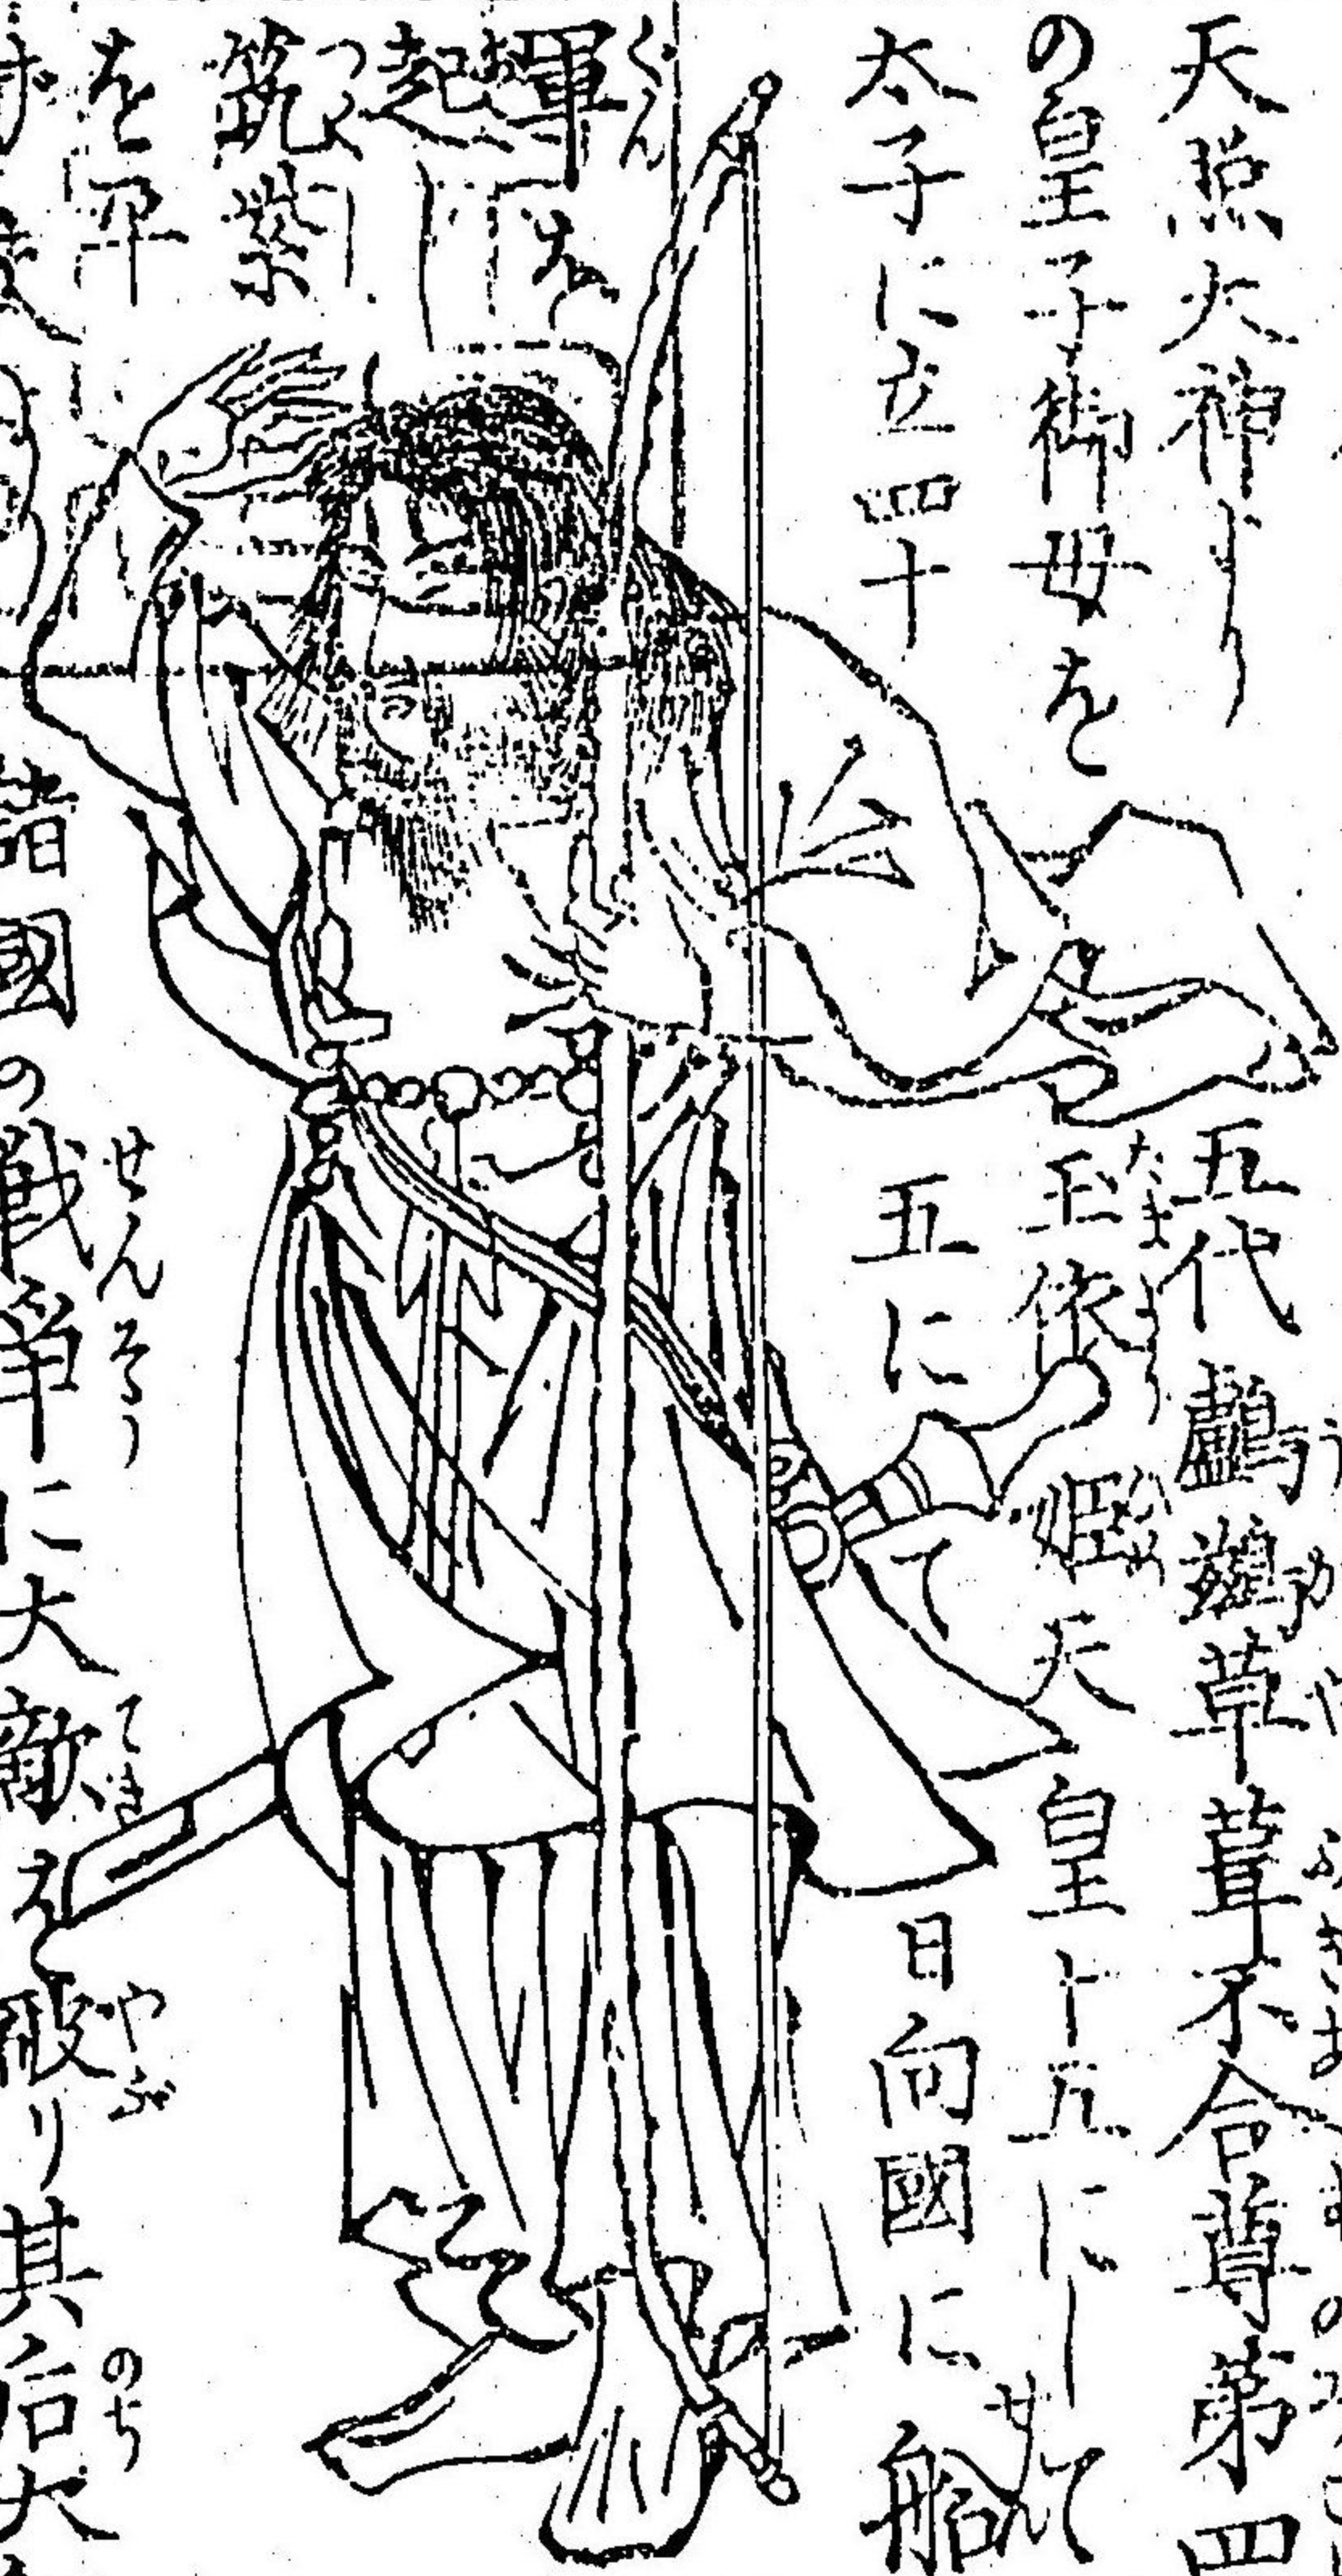 天照大神より五代鸕鷀草葺不合尊第四
の皇子御母を玉依姫天皇十五にして
太子に立四十五にて日向國に船
軍を
起し
筑紫
を平
諸國の戦争に大敵を破り其后大